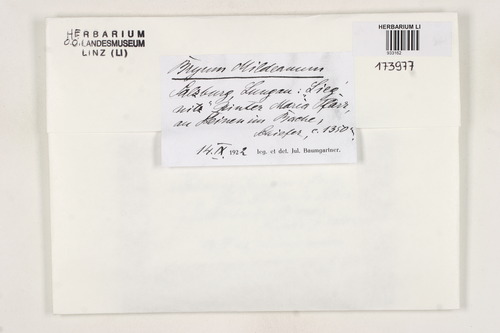 HERBARIUM
O.Ö. LANDESMUSEUM
LINZ (LI)
HERBARIUM LI
173977
Bryum Mildeanum
Salzburg, Lungau: "Lieg-
nitz" hinter Maria Pfarr,
an Steinen im Bache,
Schiefer, c. 1350 m
14. IX. 1922 leg. et det. Jul. Baumgartner.